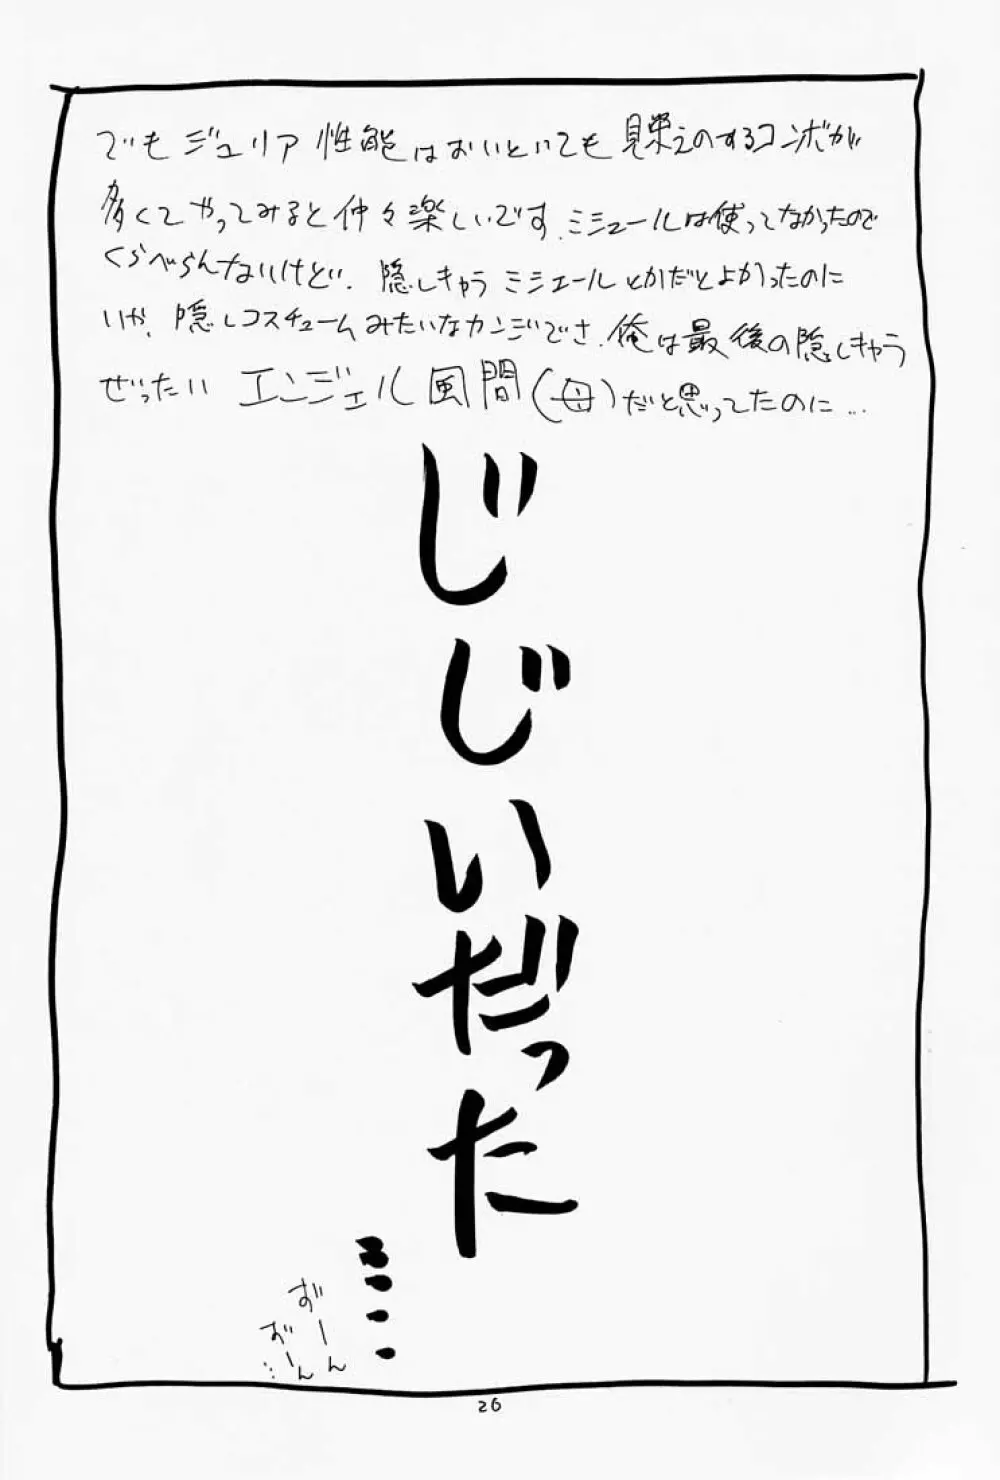 でもジュリア性能はおいといても見栄えのするコンボが
多くてやってみると仲々楽しいです.ミシェールは使ってなかったので
くらべらんないけど.隠しきゃうミシェールとかだとよかったのに
いか.隠しコスチュームみたいなカンジでさ.俺は最後の隠しきゃら
ぜったいエンジェル風間(母)だと思ってたのに…
じじいだった
・・・・
ずーん
おーん
26